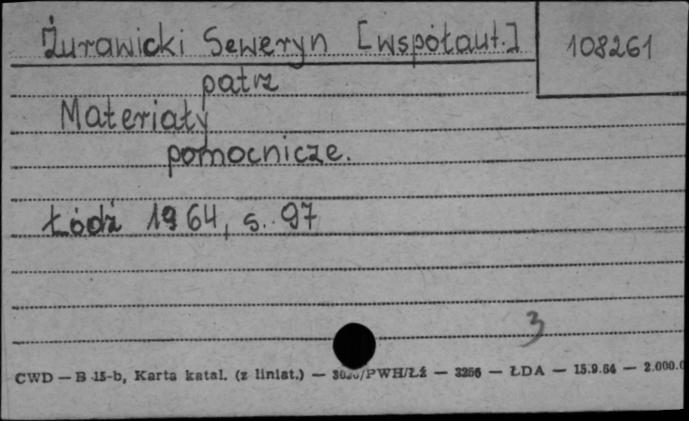 Żurawicki Seweryn [współaut.]
108261
patrz
Materiały
pomocnicze.
Łódź 1964, s. 97
3
CWD — B 15-b, Karta katal. (z liniat.) — /PWH/Łź — 3256 — ŁDA — 15.9.64 — 2.000.0